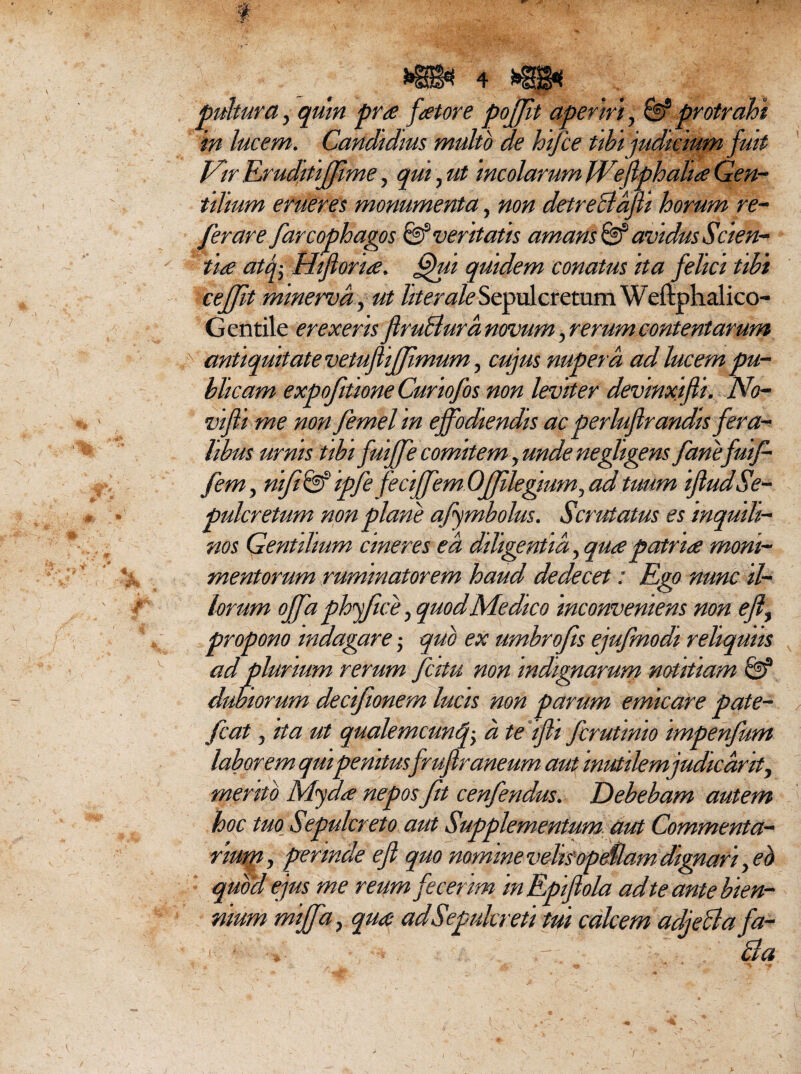 4
pultura, quin præ fætore poſſit aperiri, & protrahi
in lucem. Candidius multò de hiſce tibi judicium fuit
Vir Eruditiſſime, qui, ut incolarum Weſtphaliæ Gen-
tilium erueres monumenta, non detrectâſti horum re-
ſerare ſarcophagos & veritatis amans & avidus Scien-
tiæ atq; Hiſtoriæ. Qui quidem conatus ita felici tibi
ceſſit minervâ, ut literale Sepulcretum Weſtphalico-
Gentile erexeris ſtructurâ novum, rerum contentarum
antiquitate vetuſtiſſimum, cujus nuperâ ad lucem pu-
blicam expoſitione Curioſos non leviter devinxiſti. No-
viſti me non ſemel in effodiendis ac perluſtrandis fera-
libus urnis tibi fuiſſe comitem, unde negligens ſanè fuiſ-
ſem, niſi & ipſe feciſſem Oſſilegium, ad tuum iſtud Se-
pulcretum non planè aſymbolus. Scrutatus es inquili-
nos Gentilium cineres eâ diligentiâ, quæ patriæ moni-
mentorum ruminatorem haud dedecet: Ego nunc il-
lorum oſſa phyſicè, quod Medico inconveniens non eſt,
propono indagare; quò ex umbroſis ejuſmodi reliquiis
ad plurium rerum ſcitu non indignarum notitiam &
dubiorum deciſionem lucis non parum emicare pate-
ſcat, ita ut qualemcunq; à te iſti ſcrutinio impenſum
laborem qui penitus fruſtraneum aut inutilem judicârit,
meritò Mydæ nepos ſit cenſendus. Debebam autem
hoc tuo Sepulcreto aut Supplementum aut Commenta-
rium, perinde eſt quo nomine velis opellam dignari, eò
quòd ejus me reum fecerim in Epiſtola ad te ante bien-
nium miſſa, quæ ad Sepulcreti tui calcem adjecta fa-
cta